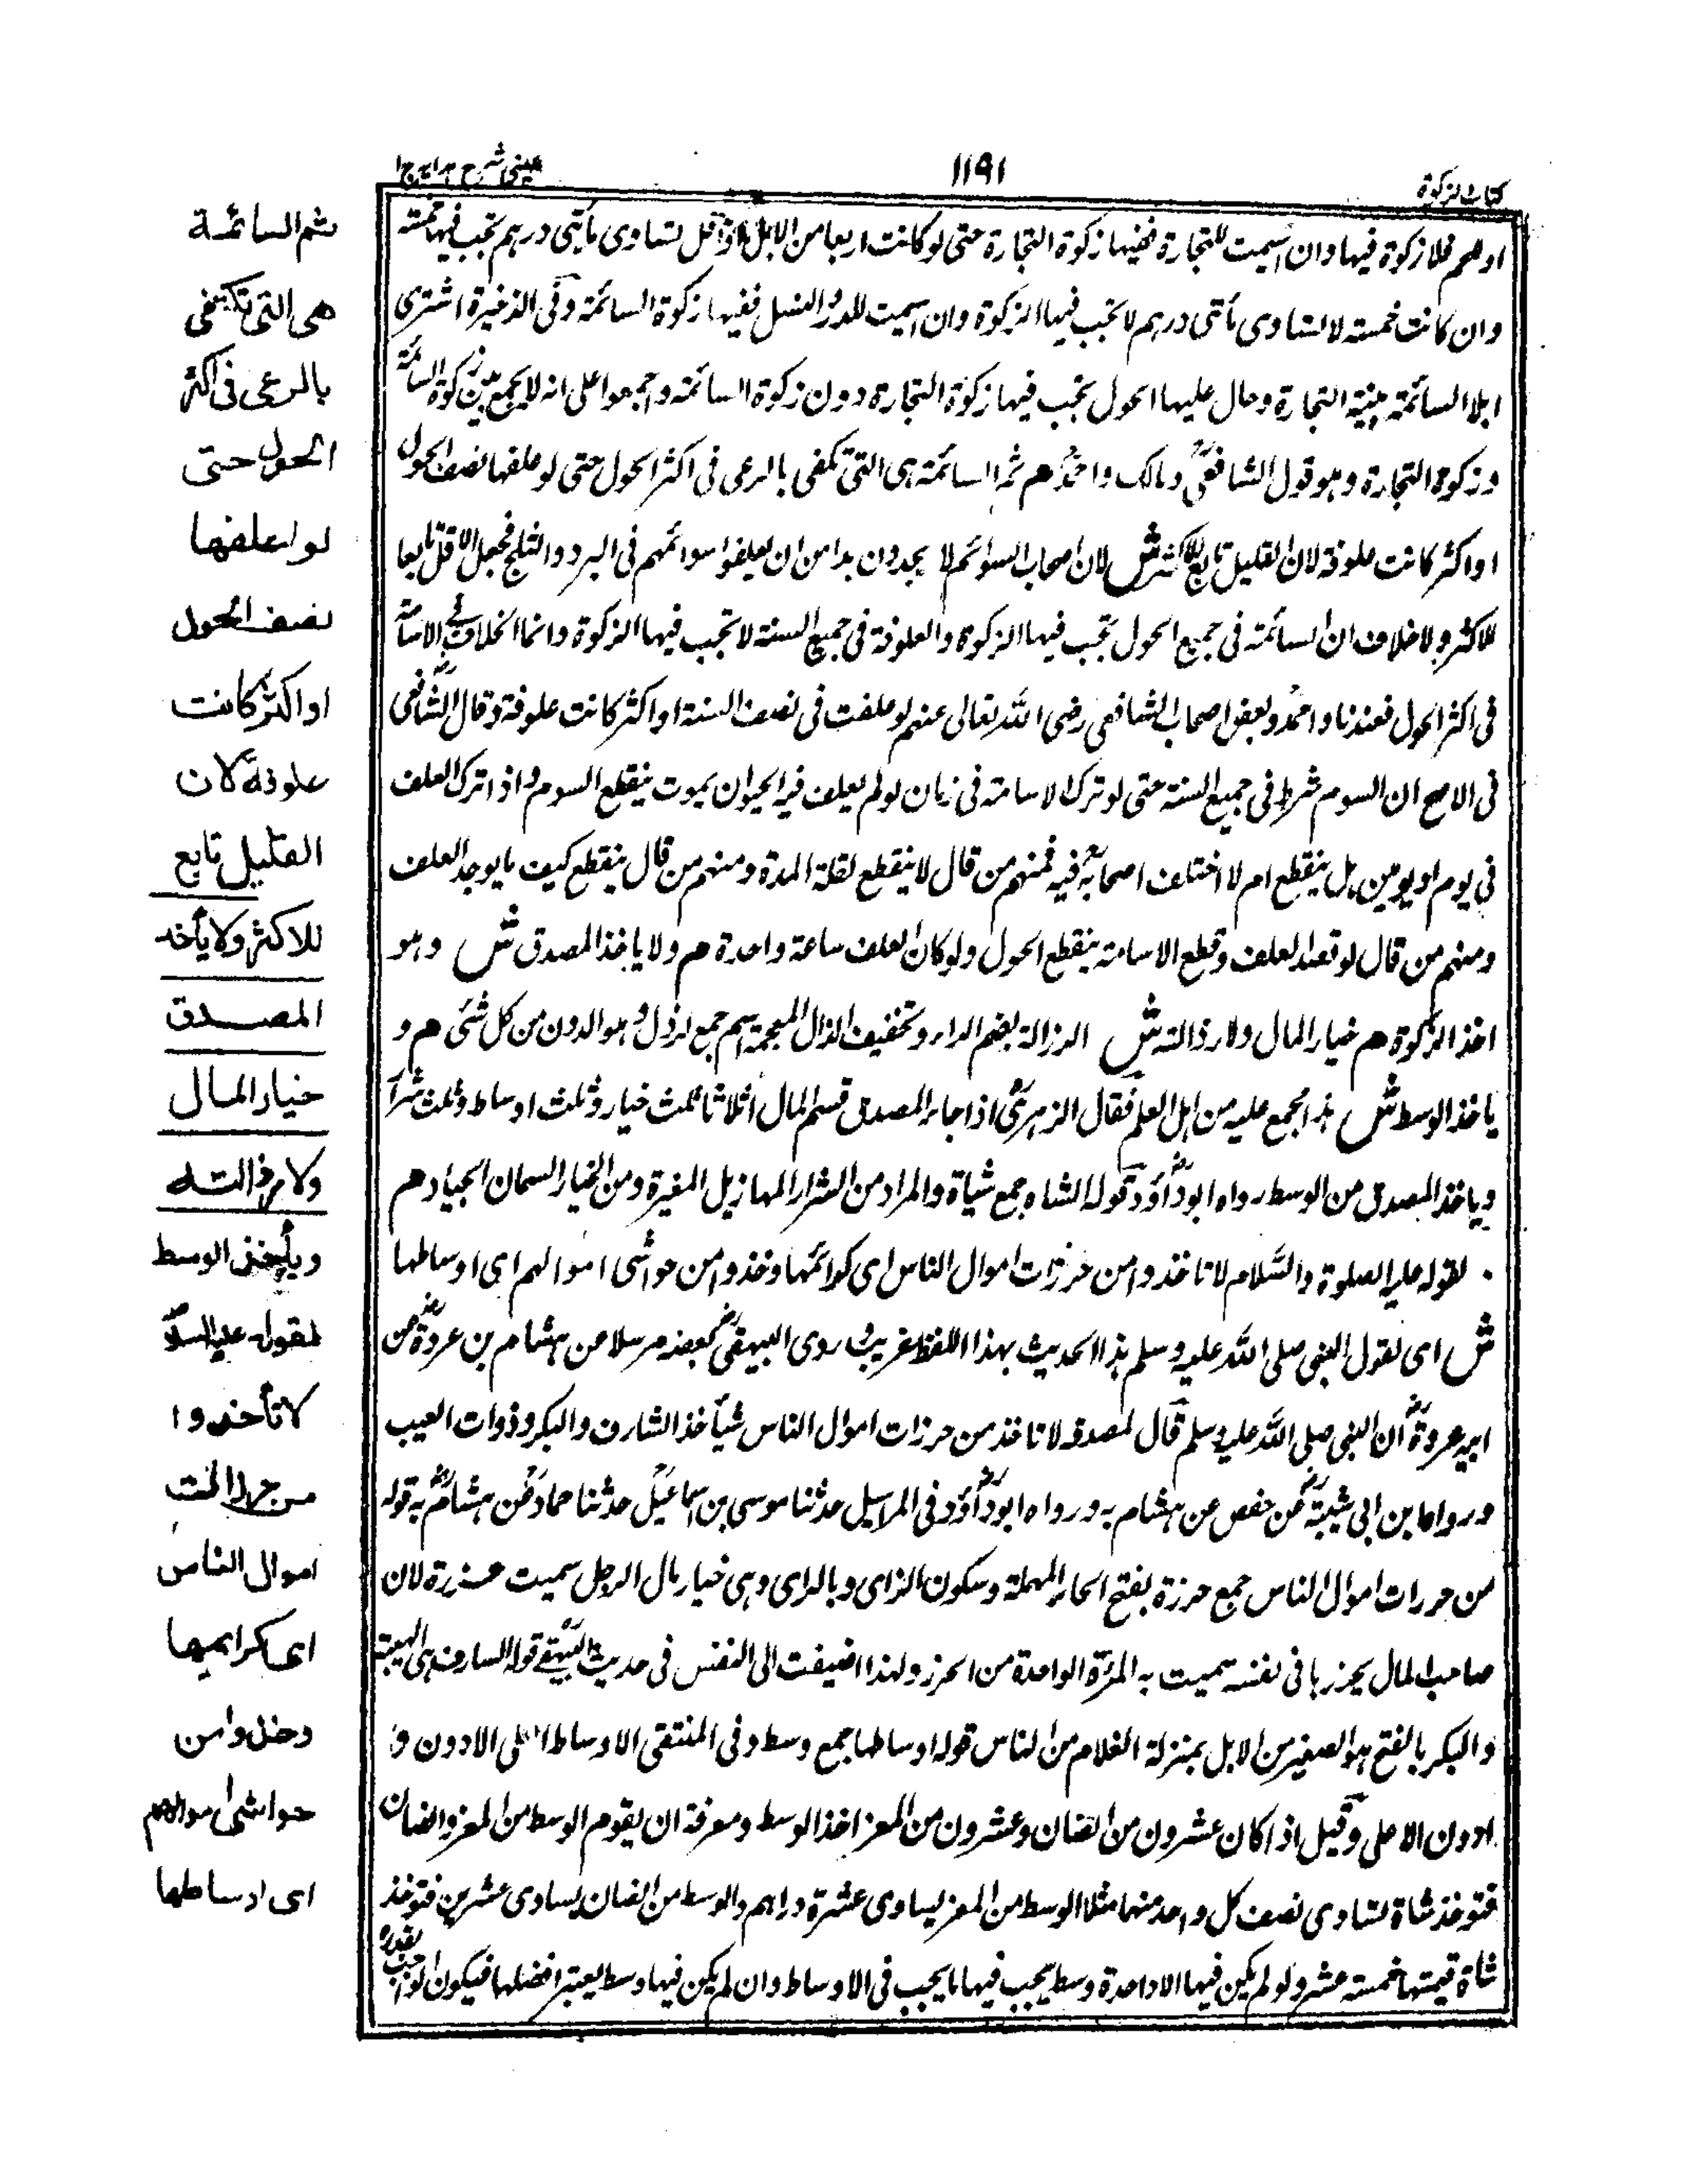 كتاب الزكوة
١١٩١
عينى شرح هداية ج١
او للحم فلا زكوة فيها وان اسيمت للتجارة ففيها زكوة التجارة حتى لو كانت اربعا من الابل او اقل تساوى مأتى درهم تجب فيها خمسة
وان كانت خمسة لا تساوى مأتى درهم لا تجب فيها الزكوة وان اسيمت للدر والنسل ففيها زكوة السائمة وفى الذخيرة اشترى
ابلا السائمة بنية التجارة وحال عليها الحول تجب فيها زكوة التجارة دون زكوة السائمة واجمعوا على انه لا يجمع بين زكوة السائمة
وزكوة التجارة وهو قول الشافعى ومالك واحمد هم ثم السائمة هى التى تكفى بالرعى فى اكثر الحول حتى لو علفها نصف الحول
او اكثر كانت علوفة لان القليل تابع للاكثر ش لان اصحاب السوائم لا يجدون بدا من ان يعلفوا سوائمهم فى البرد والثلج فجعل الاقل تابعا
للاكثر ولا خلاف ان السائمة فى جميع الحول تجب فيها الزكوة والعلوفة فى جميع السنة لا تجب فيها الزكوة وانما الخلاف فى الاسامة
فى اكثر الحول فعندنا واحمد وبعض اصحاب الشافعى رضى الله تعالى عنهم لو علفت فى نصف السنة او اكثر كانت علوفة وقال الشافعى
فى الاصح ان السوم شرط فى جميع السنة حتى لو ترك الاسامة فى زمان لو لم يعلف فيه الحيوان يموت ينقطع السوم واذا ترك العلف
فى يوم او يومين هل ينقطع ام لا اختلف اصحابه فيه فمنهم من قال لا ينقطع لقلة المدة ومنهم من قال ينقطع كيف ما يوجد العلف
ومنهم من قال لو قصد العلف وقطع الاسامة ينقطع الحول ولو كان العلف ساعة واحدة هم ولا ياخذ المصدق ش وهو
اخذ الزكوة هم خيار المال ولا رذالته ش الرذالة بضم الراء وتخفيف الذال المعجمة اسم جمع لرذل وهو الدون من كل شئ هم و
ياخذ الوسط ش هذا مجمع عليه من اهل العلم فقال الزهرى اذا جاء المصدق قسم المال اثلاثا ثلث خيار وثلث اوساط وثلث شرار
وياخذ المصدق من الوسط رواه ابو داؤد قوله الشاء جمع شياة والمراد من الشرار المهازيل الصغيرة ومن الخيار السمان الجياد هم
لقوله عليه الصلوة والسلام لا تاخذوا من حرزات اموال الناس اى كرائمها وخذوا من حواشى اموالهم اى اوساطها
ش اى لقول النبى صلى الله عليه وسلم هذا الحديث بهذا اللفظ غريب روى البيهقى بعضه مرسلا عن هشام بن عروة عن
ابيه عروة ان النبى صلى الله عليه وسلم قال لمصدقه لا تاخذ من حرزات اموال الناس شيأ خذ الشارف والبكر وذوات العيب
ورواه ابن ابى شيبة عن حفص عن هشام به ورواه ابو داؤد فى المراسيل حدثنا موسى بن اسماعيل حدثنا حماد عن هشام به قوله
من حرزات اموال الناس جمع حرزة بفتح الحاء المهملة وسكون الزاى وبالراى وهى خيار مال الرجل سميت حزرة لان
صاحب المال يحزرها فى نفسه سميت به المرة الواحدة من الحرز ولهذا اضيفت الى النفس فى حديث البيهقى قوله الشارف هى الهيبة
والبكر بالفتح هو الصغير من الابل بمنزلة الغلام من الناس قوله اوساطها جمع وسط وفى المنتقى الاوساط اعلى الادون و
ادون الاعلى وقيل اذا كان عشرون من الضان وعشرون من المعز اخذ الوسط ومعرفة ان يقوم الوسط من المعز والضان
فتوخذ شاة تساوى نصف كل واحد منهما مثلا الوسط من المعز يساوى عشرة دراهم والوسط من الضان يساوى عشرين فتوخذ
شاة قيمتها خمسة عشر ولو لم يكن فيها الا واحدة وسط يجب فيها ما يجب فى الاوساط وان لم يكن فيها وسط يعتبر افضلها فيكون الواجب بقدره
ثم السائمة
هى التى تكتفى
بالرعى فى اكثر
الحول حتى
لو علفها
نصف الحول
او اكثر كانت
علوفة لان
القليل تابع
للاكثر ولا يأخذ
المصدق
خيار المال
ولا رذالته
ويأخذ الوسط
لقوله عليه السلام
لا تأخذوا
من حرزات
اموال الناس
اى كرايمها
وخذوا من
حواشى اموالهم
اى اوساطها